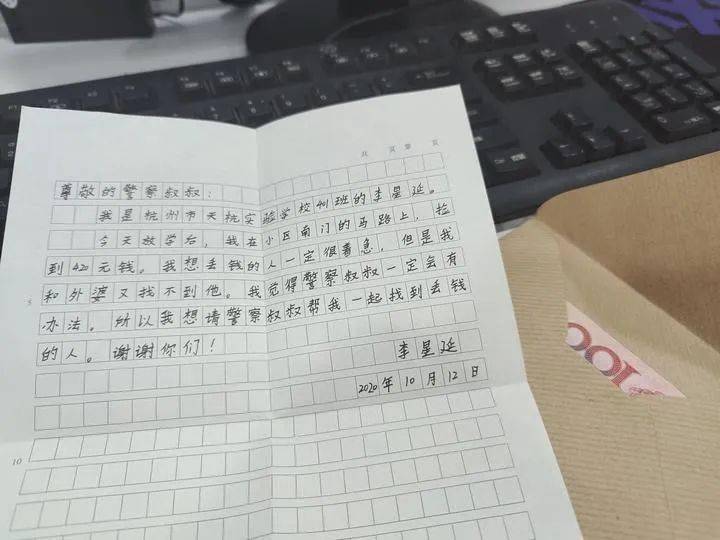 共 页 第 页
尊敬的警察叔叔：
我是杭州市天杭实验学校401班的李星延。
今天放学后，我在小区南门的马路上，捡
到420元钱。我想丢钱的人一定很着急，但是我
和外婆又找不到他。我觉得警察叔叔一定会有
办法。所以我想请警察叔叔帮我一起找到丢钱
的人。谢谢你们！
李星延
2020年10月12日
5
10
100